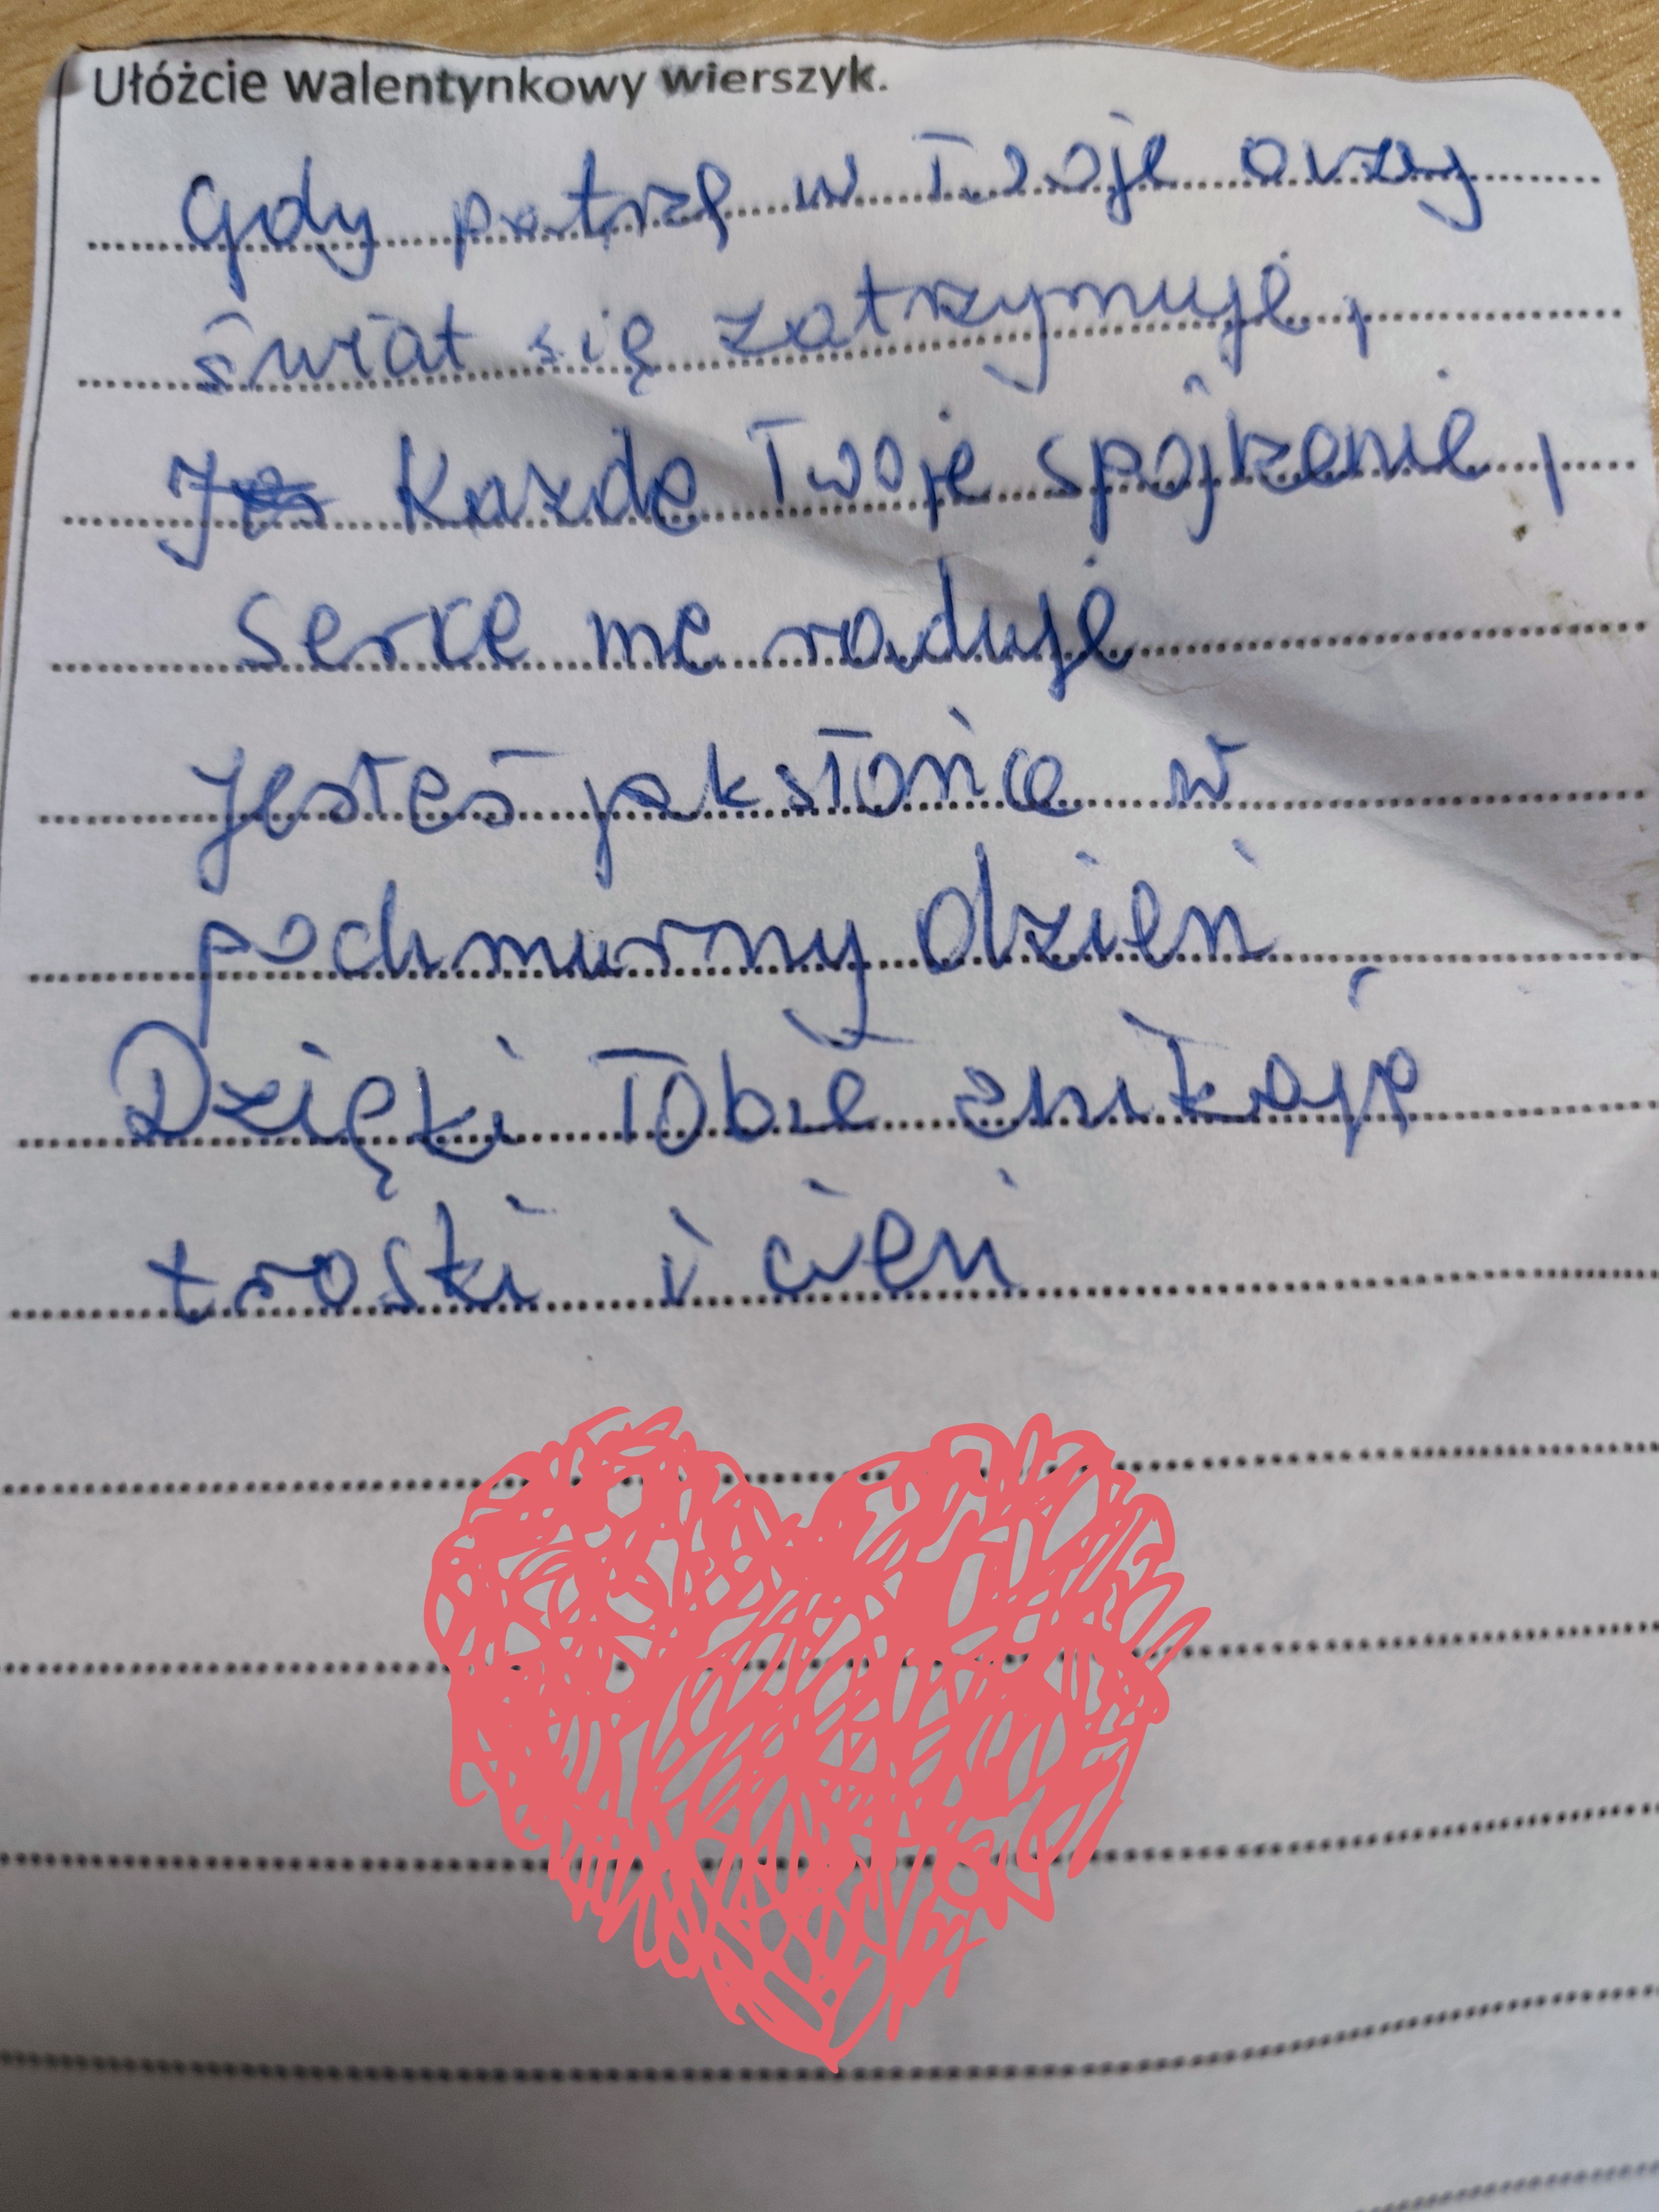 Ułóżcie walentynkowy wierszyk.
Gdy patrzę w Twoje oczy
świat się zatrzymuje,
Każde Twoje spójżenie,
serce me raduje
Jesteś jak słońce w
pochmurny dzień
Dzięki Tobie znikają
troski i cień